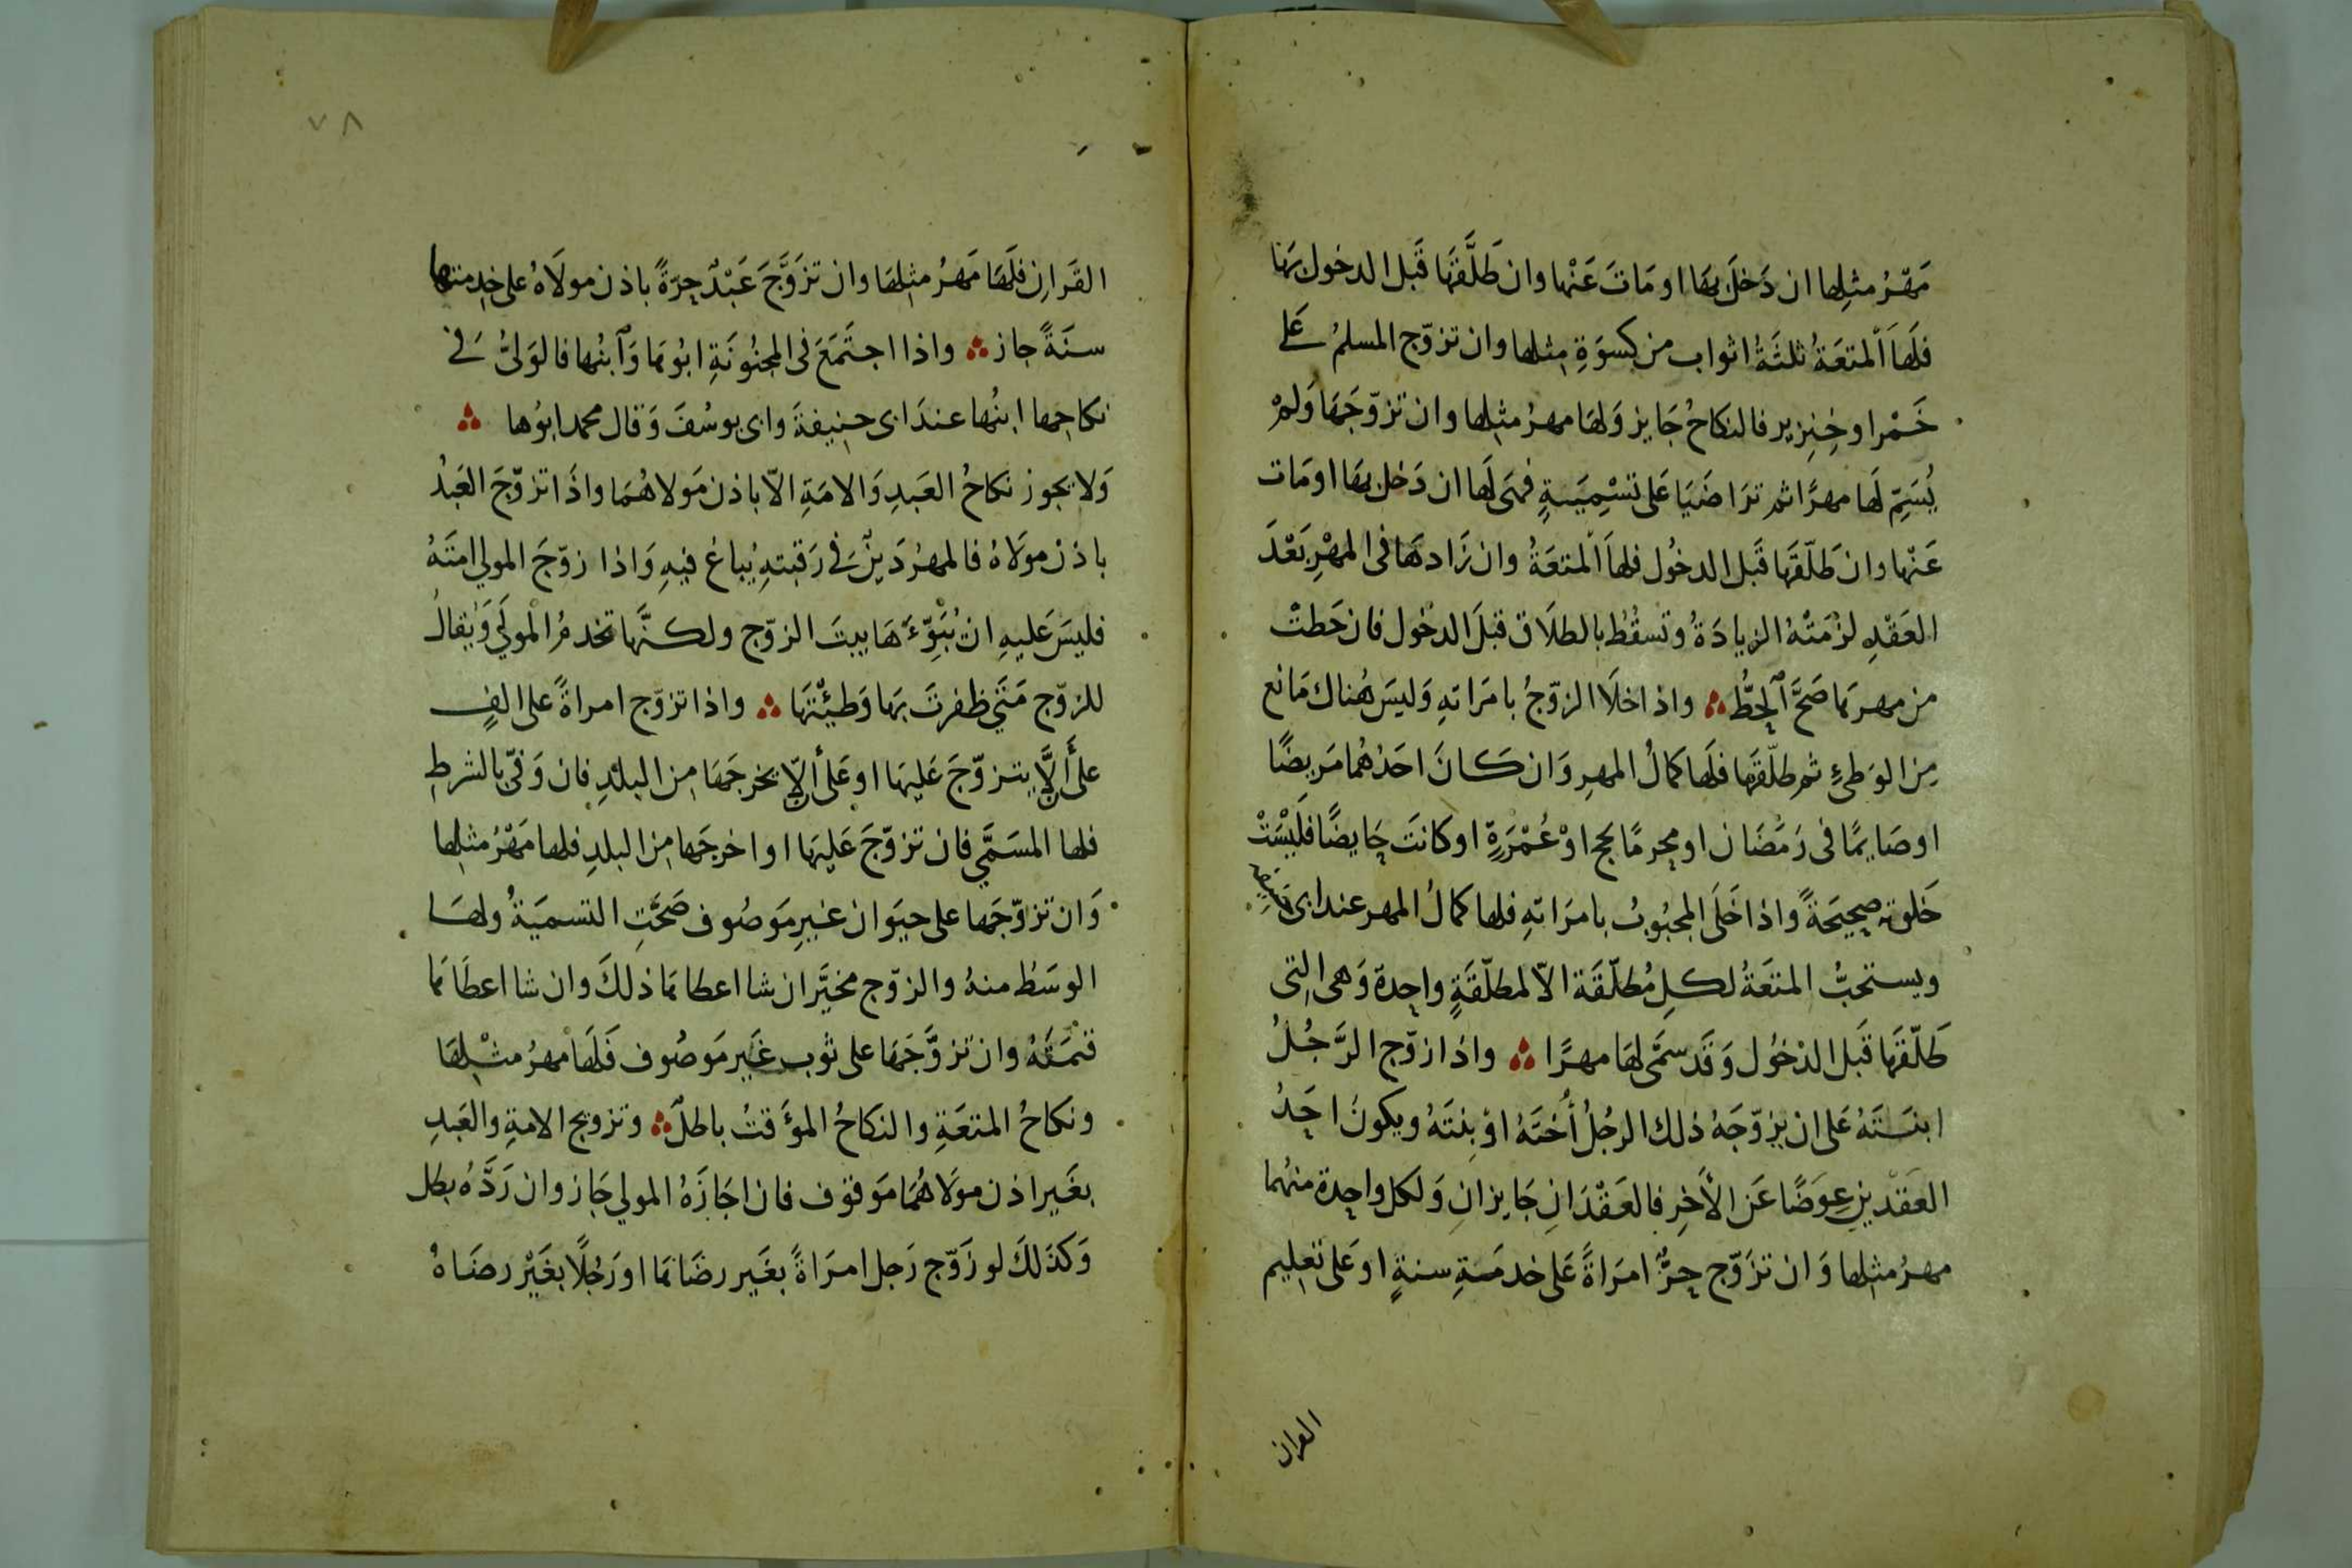 مَهْرُ مثلِها ان دَخلَ بهَا او مَاتَ عَنْها وان طَلَّقَهَا قَبل الدخول بهَا
فلَهَا اَلْمتعَةُ ثلثَةُ اثواب من كِسوَةِ مِثلها وان تزوّج المسلمُ عَلى
خَمْر او خِنزِير فالنكاحُ جَايز وَلهَا مهرُ مثلِها وان تزوّجَهَا وَلمْ
يُسَمِّ لَها مهرًا ثم ترَاضَيَا عَلى تسْمِيَةٍ فهىَ لَها ان دَخل بهَا او مَات
عَنْها وان طَلّقهَا قَبل الدخُول فلهَا اَلْمتعَةُ وان زَادهَا فى المهْرِ بَعْدَ
العَقْدِ لزمَتْهُ الزيادَةُ وتسقُطُ بالطلاَق قبلَ الدخول فان حَطتْ
من مهرهَا صَحَّ اَلحِطُّ واذا خلاَ الزوّجُ بامرَاتهِ وَليسَ هُناك مَانع
مِن الوَطىءِ ثم طلّقهَا فلَها كمالُ المهرِ وَان كَانَ احَدُهُما مَريضًا
او صَايمًا فى رَمَضَان او محِرمًا بحج اوْ عُمْرَةٍ او كانتَ حَايضًا فلَيْسَتْ
خَلوة صحِيحَةً واذا خَلَى المجبُوبُ بامرَاتهِ فلها كمالُ المهر عند ابى حَنيفه
ويستحبُّ المتعَةُ لكلِ مُطلّقَة الاّ لمطلّقَةٍ واحِدة وَهى التِى
طَلّقهَا قَبل الدخُول وَقَد سمَّى لهَا مهرًا واذا زوّج الرَّجُلُ
ابنتَهُ عَلى ان يزوّجَهُ ذلك الرجُلُ أُخْتَهُ اوْ بِنتَهُ ويكونُ احَدُ
العَقدينِ عِوَضًا عَن الأخرِ فالعَقْدَانِ جَايزانِ وَلكل واحِدة منهُما
مهرُ مثلِها وَان تزَوّج حِرٌّ امرَاةً عَلى خدمَةِ سنةٍ او عَلى تعلِيم
القران
٧٨
القَرانِ فلَهَا مَهرُ مثلِهَا وان تزَوَّجَ عَبْدٌ حِرّةً باذن مولَاهُ على خِدمتها
سنَةً جاز واذا اجتَمَعَ فى المجنُونَةِ ابُوهَا وَاَبنُها فالوَلىُّ فى
نكاحِها ابنُها عندَ ابى حنِيفةَ وابى يوسُفَ وَقال محمد ابُوها
وَلا يجوز نكاحُ العَبدِ وَالامَةِ الاّ باذن مَولاهُمَا واذَا تزوّجَ العَبدُ
باذن مولَاهُ فالمهرُ دَينٌ فى رَقبتهِ يُباع فيهِ وَاذا زوّجَ المولي امتَهُ
فليسَ عَليهِ ان يُبَوّءَهَا بيتَ الزوّج ولكنّها تخدمُ المْولَي وَيُقالُ
للزوّج مَتَي ظفرتَ بهَا وَطيئْتهَا واذا تزوّج امراةً على الفٍ
على أَلاَّ يتزوّجَ عَليهَا او عَلى ألاّ يخرجَهَا مِن البلدِ فان وَفّى بالشرطِ
فلها المسَمَّي فان تزوّجَ عَليهَا او اخرجَها مِن البلدِ فلها مَهْرُ مثلِها
وَان تزوّجَها على حيَوان غيرِ مَوصُوف صَحَّتِ التسميَةُ ولهَا
الوسَطُ منهُ والزوّج مخيَّر ان شا اعطاهَا ذلكَ وان شا اعطَاهَا
قيمَتَهُ وان تزوَّجَهَا على ثوب غَير مَوصُوف فَلَهَا مهرُ مثْلِهَا
ونكاحُ المتعَةِ والنكاحُ المؤقتُ باطلٌ وتزويج الامةِ والعَبدِ
بغَير اذن مولاَهُمَا مَوقوف فان اجَازَهُ المولي جَاز وان رَدَّهُ بطل
وَكذَلكَ لو زَوّج رَجل امرَاةً بغَير رضَاهَا او رَجُلًا بغَيْر رضَاهُ